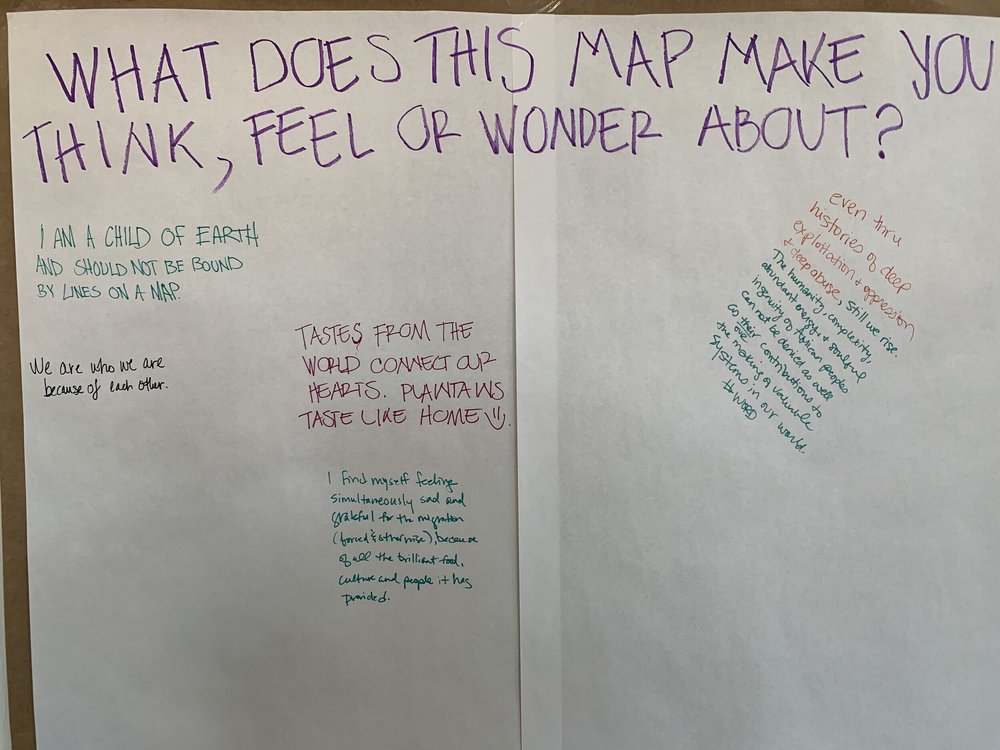 WHAT DOES THIS MAP MAKE YOU
THINK, FEEL OR WONDER ABOUT?
I AM A CHILD OF EARTH
AND SHOULD NOT BE BOUND
BY LINES ON A MAP.
We are who we are
because of each other.
TASTES FROM THE
WORLD CONNECT OUR
HEARTS. PLANTAINS
TASTE LIKE HOME
I find myself feeling
simultaneously sad and
grateful for the migration
(forced & otherwise), because
of all the brilliant food,
culture and people it has
provided.
even thru
histories of deep
exploitation + oppression
+ deep abuse, still we rise.
The humanity, complexity,
abundant energy & soulful
ingenuity of African peoples
can not be denied as well
as their contributions to
the making of valuable
systems in our world.
#WORD